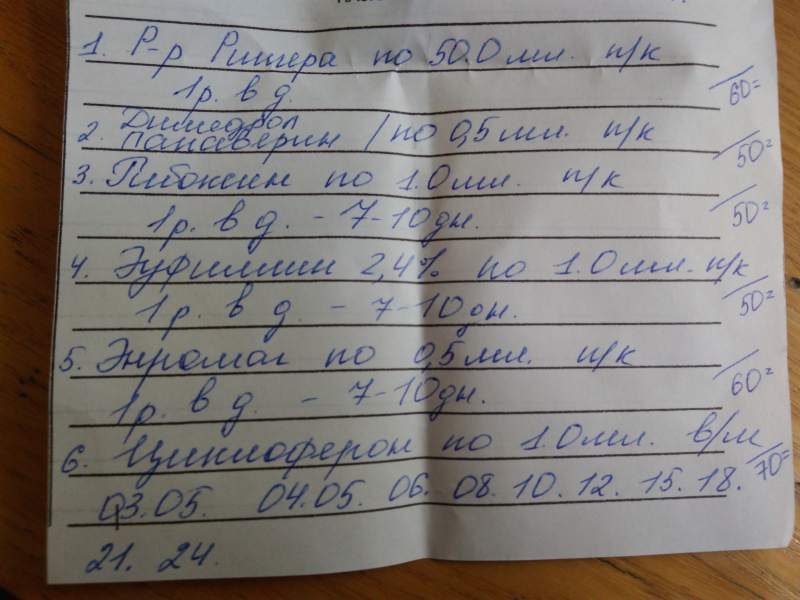 1. Р-р Рингера по 50.0 мл. п/к
1 р. в д. 60=
2. Димедрол
Папаверин / по 0,5 мл. п/к 50=
3. Рибоксин по 1.0 мл. п/к
1 р. в д. - 7-10 дн. 50=
4. Эуфиллин 2,4% по 1.0 мл. п/к
1 р. в д. - 7-10 дн. 50=
5. Энромаг по 0,5 мл. п/к
1 р. в д. - 7-10 дн. 60=
6. Циклоферон по 1.0 мл. в/м
03.05. 04.05. 06. 08. 10. 12. 15. 18. 70=
21. 24.